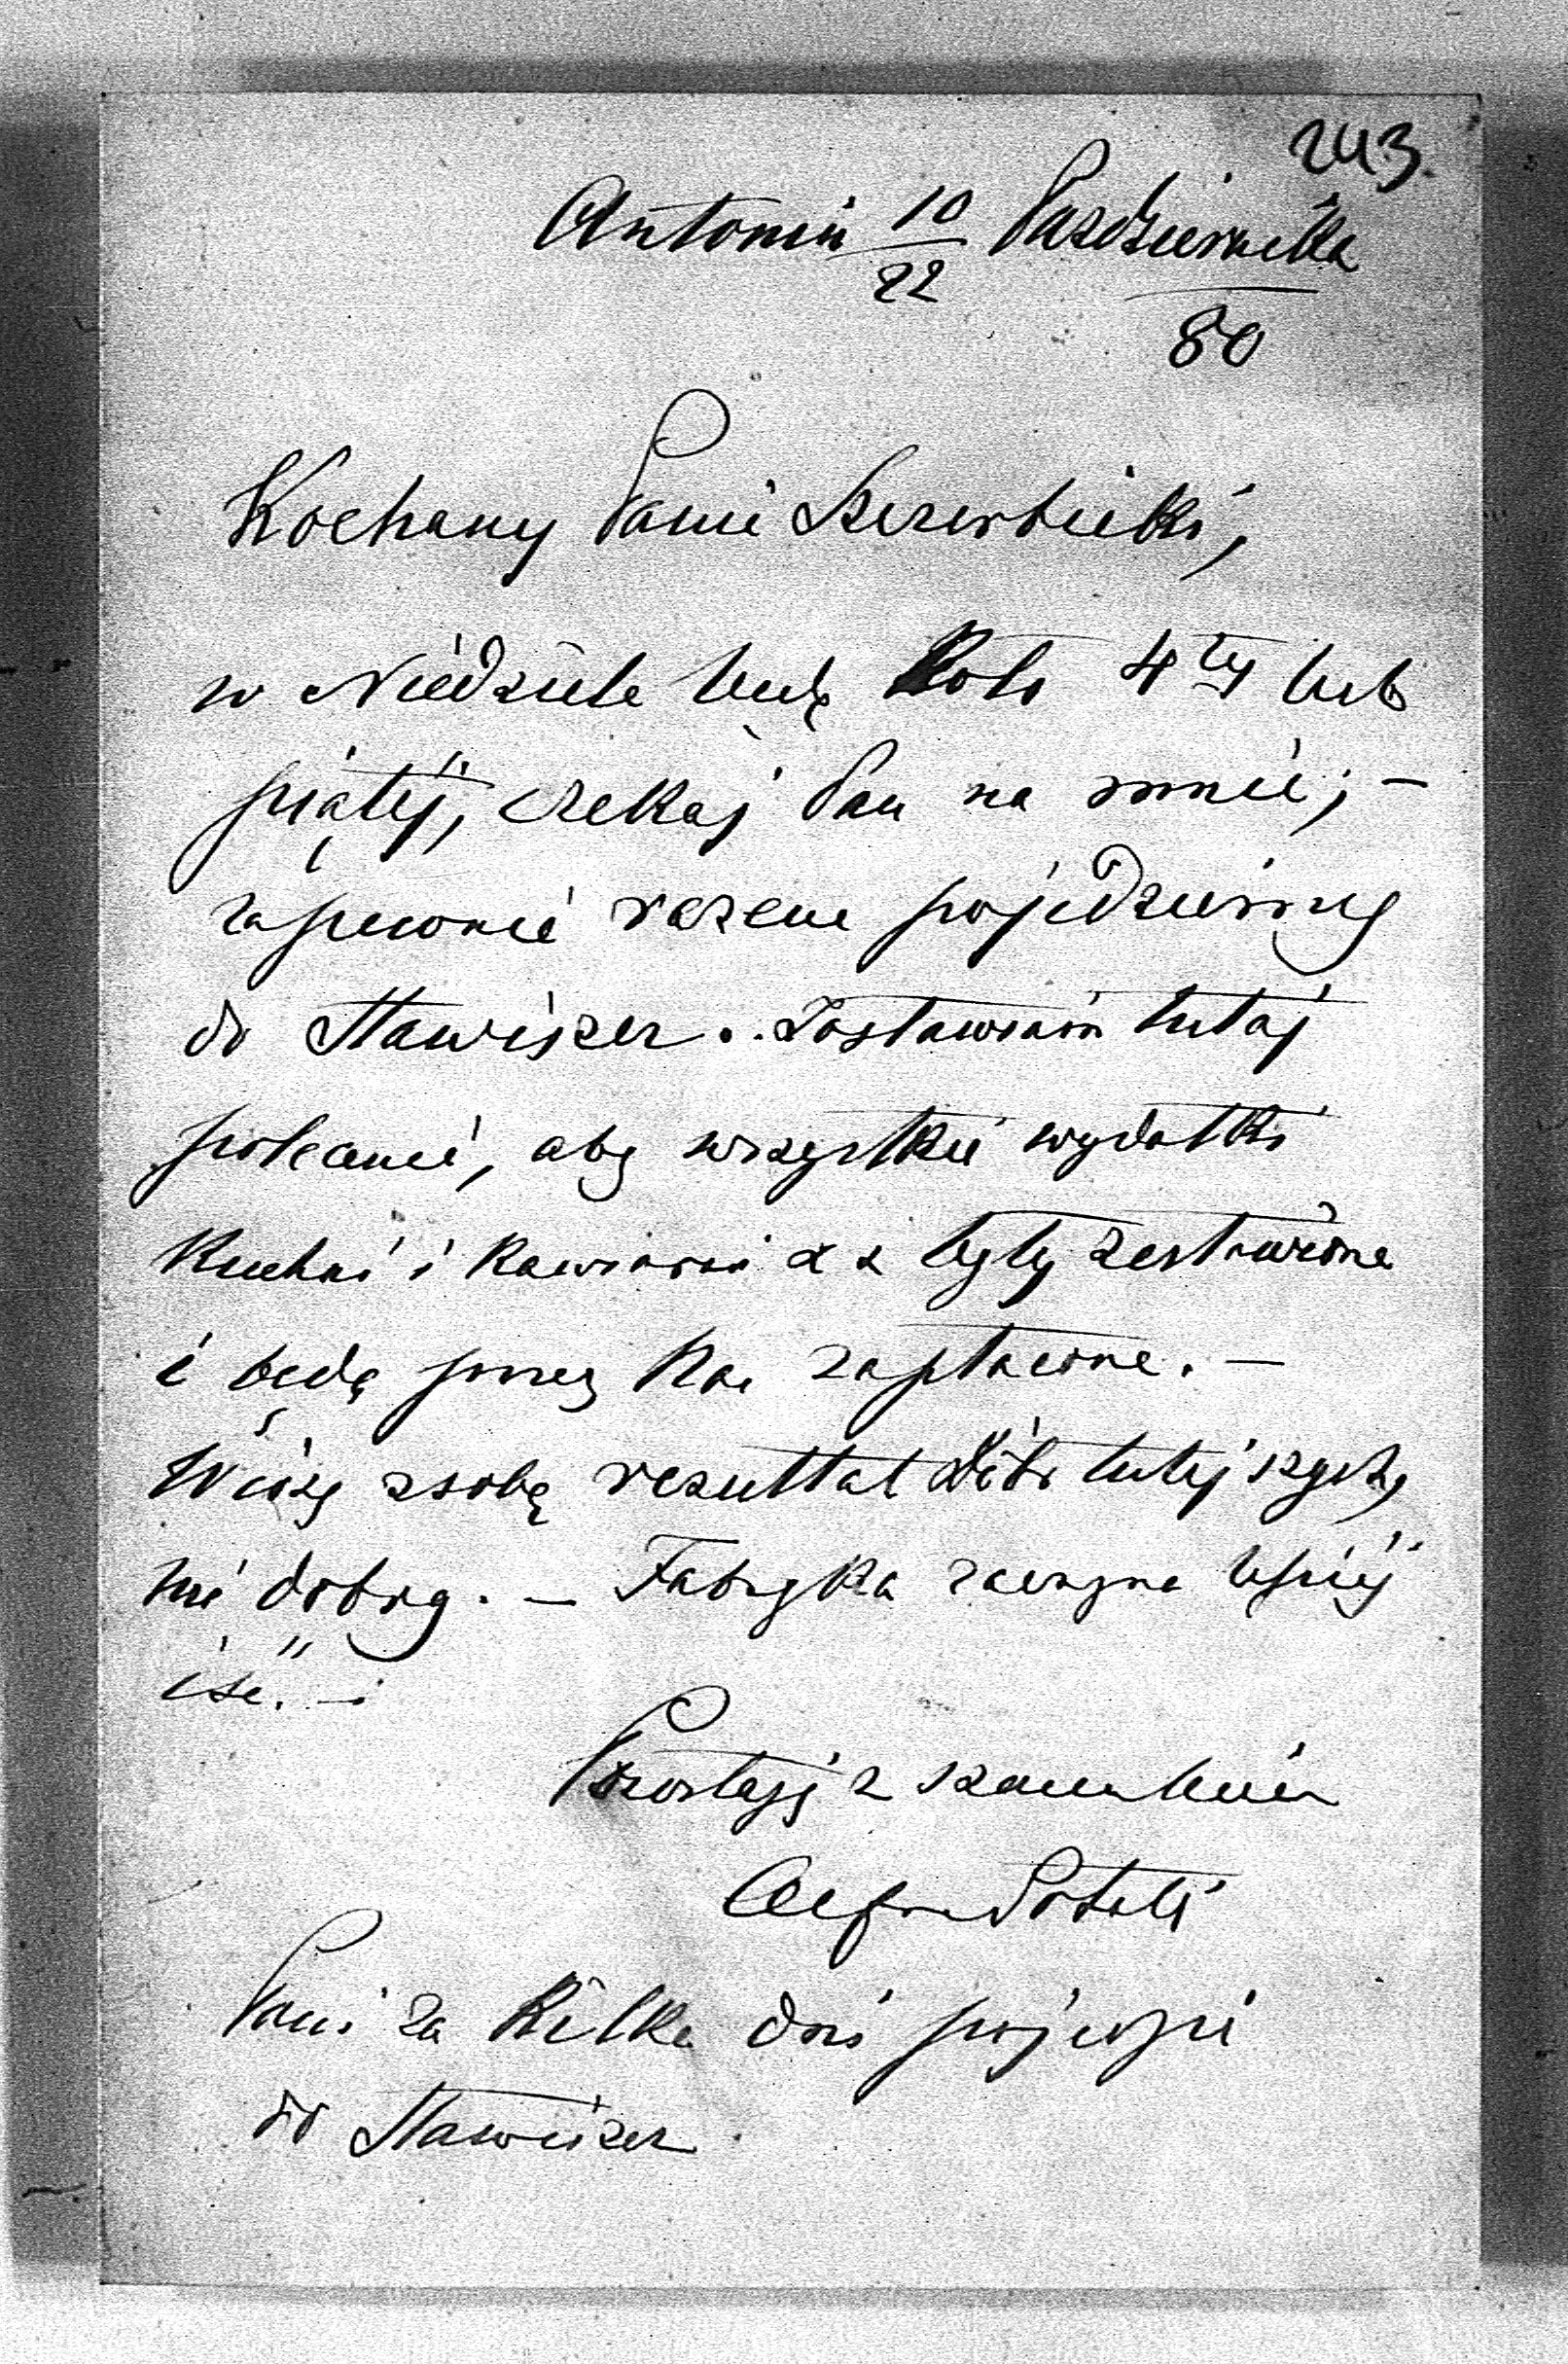 243.
Antonin 10/22 Października
80
Kochany Panie Szczerbicki,
w Niedziele będę koło 4téj lub
piątéj, czekaj Pan na mnie; –
zapewnie razem pojedziemy
do Stawiszcz. Zostawiam tutaj
polecenie, aby wszystkie wydatki
kuchni i kawiarni były zestawione
i będą przez Kas zapłacone. –
Wiozę z sobą rezultat dóbr tutejszych,
nie dobry. – Fabryka zaczyna lepiéj
iść. –
Pozostaję z szacunkiem
Alfred Potocki
Pani za kilka dni pojedzie
do Stawiszcz